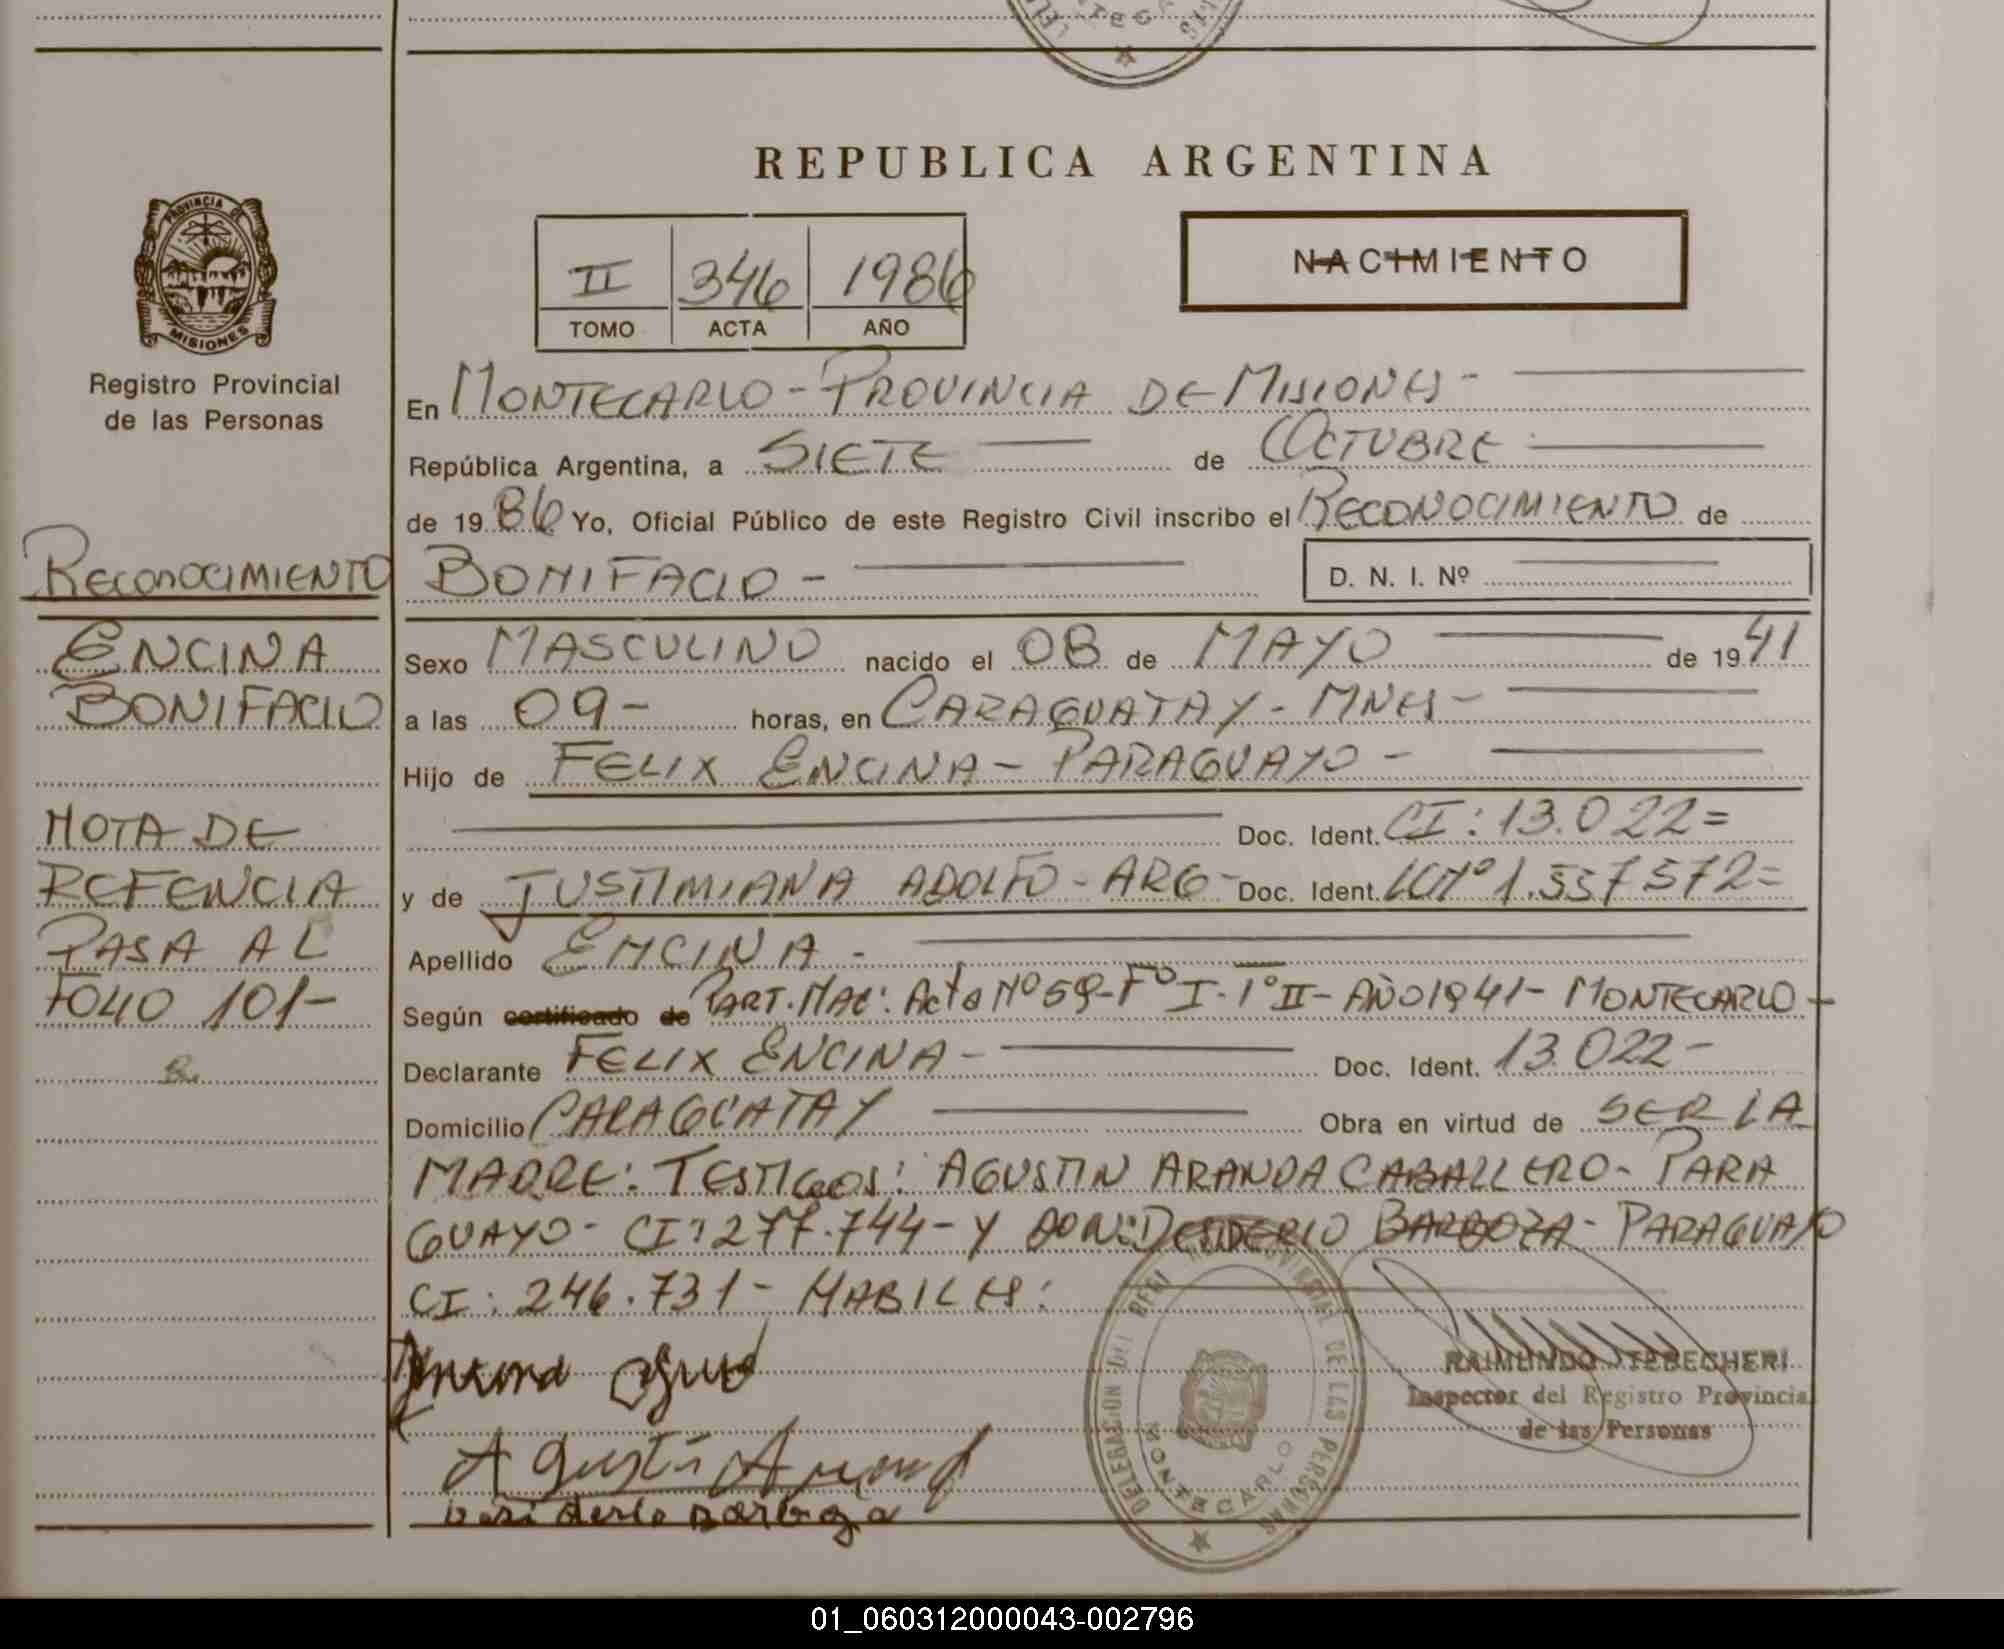 REPUBLICA ARGENTINA
PROVINCIA DE
MISIONES
Registro Provincial
de las Personas
II 346 1986
TOMO ACTA AÑO
NACIMIENTO
En MONTECARLO - PROVINCIA DE MISIONES -
República Argentina, a SIETE de OCTUBRE
de 1986 Yo, Oficial Público de este Registro Civil inscribo el RECONOCIMIENTO de
BONIFACIO - D. N. I. Nº
RECONOCIMIENTO
ENCINA
BONIFACIO
NOTA DE
REFENCIA
PASA AL
FOLIO 101-
Sexo MASCULINO nacido el 08 de MAYO de 1941
a las 09- horas, en CARAGUATAY - MNES -
Hijo de FELIX ENCINA - PARAGUAYO -
Doc. Ident. CI: 13.022=
y de JUSTINIANA ADOLFO - ARG - Doc. Ident. LCNº 1.557572=
Apellido ENCINA -
Según certificado de PART. NAC: Acta Nº 59-Fº I-Tº II- AÑO 1941- MONTECARLO -
Declarante FELIX ENCINA - Doc. Ident. 13.022-
Domicilio CARAGUATAY Obra en virtud de SER LA
MADRE: TESTIGOS: AGUSTIN ARANDA CABALLERO - PARA
GUAYO - CI: 277.744- Y DON: DESIDERIO BARBOZA - PARAGUAYO
CI: 246.731- HABILES:
Agustín Arand
Desiderio Barboza
DELEGACION DEL REGISTRO PROVINCIAL DE LAS PERSONAS
MONTECARLO
RAIMUNDO TEBECHERI
Inspector del Registro Provincial
de las Personas
01_060312000043-002796